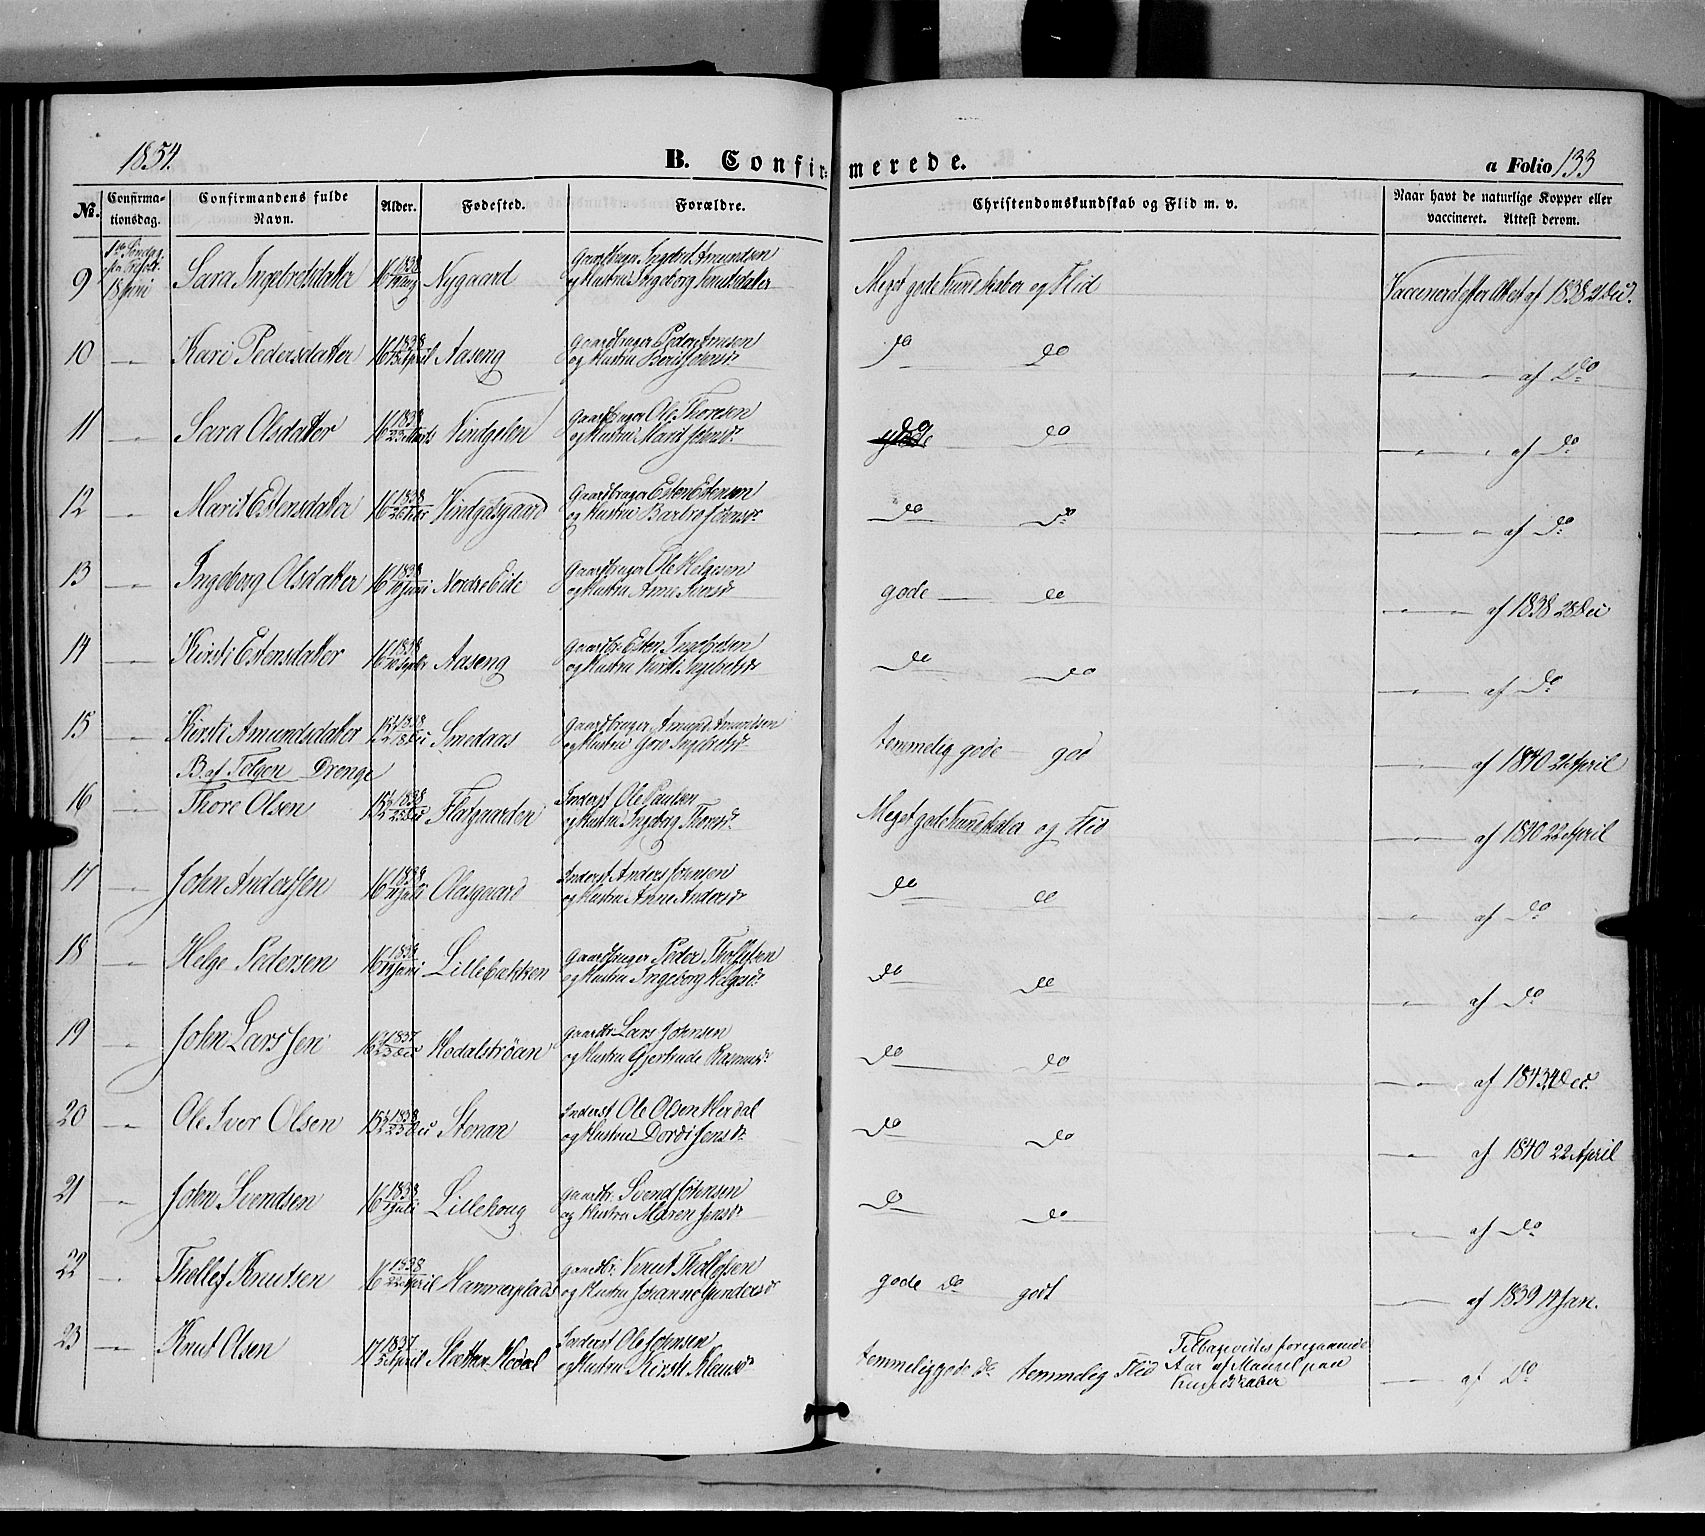 1854.
B. Confirmerede.
a Folio 133
№.
Confirma-
tionsdag.
Confirmandens fulde
Navn.
Alder.
Fødested.
Forældre.
Christendomskundskab og Flid m. v.
Naar havt de naturlige Kopper eller
vaccineret. Attest derom.
9 18 Juni Sara Ingebretsdatter 16 1838 Nygaard Ingebret Amundsen
og Hustru Ingeborg Knutsdatter Meget gode Kundskaber og Flid Vaccinered efter Attest af 1838 21 Dec.
10 — Kari Pedersdatter 16 1838 April Aaseng Gaardbruger Peder
og Hustru Berit do do — af Do
11 — Sara Olsdatter 16 1838 Marts Vintgelen Gaardbruger Ole Thoresen
og Hustru Marit do do — af Do
12 — Marit Estensdatter 16 1838 Vindgelsgaard Gaardbruger Esten Estensen
og Hustru Barbro do do — af Do
13 — Ingeborg Olsdatter 16 1838 Juni Nordre Eide Gaardbruger Ole Helgesen
og Hustru Anne Iversd. gode — do — af 1838 28 Dec
14 — Kirsti Estensdatter 16 1838 Aaseng Gaardbr. Esten Ingebretsen
og Hustru Kirsti Ingebretsd. do do — af Do
15 — Kirsti Amundsdatter 15½ 1838 Dec Smedaas Gaardbruger Amund Amundsen
og Hustru Goro Ingebretsd. temmelig gode god — af 1840 21 April
B. af Tolgen Drenge
16 — Thore Olsen 15½ 1838 Dec Flatgaarden Inderst Ole Paulsen
og Hustru Ingeborg Thoresd. Meget gode Kundskaber og Flid — af 1840 22 April
17 — John Anderssen 16 1838 Juli Olasgaard Inderst Anders Johnsen
og Hustru Anne Andersd. do do — af Do
18 — Helge Pedersen 16 1838 Juni Lillebakken Gaardbruger Peder Tholfsen
og Hustru Ingeborg Helgesd. do do — af Do
19 — John Larssen 16½ 1837 Dec Hodalstrøan Gaardbr. Lars Johnsen
og Hustru Gjertrude Rasmusd. do do — af 1843 4 Dec.
20 — Ole Iver Olsen 15½ 1838 Dec Stenan Inderst Ole Olsen Herdal
og Hustru Dordi Jensd. do do — af 1840 22 April
21 — John Svendsen 16 1838 Juli Lillehoug Gaardbr. Svend Johnsen
og Hustru Maren Jensd. do do — af Do
22 — Thollef Knutsen 16 1838 22 April Hammerplads Gaardbr. Knut Thollefsen
og Hustru Johanne Gundersd. gode Do godt — af 1839 19 Jan.
23 — Knut Olsen 17 1837 5 April Inderst Ole Johnsen
og Hustru Kirsti Klausd. temmelig gode do temmelig Flid Tilbageviist foregaaende
Aar af Mangel paa
Kundskaber — af Do